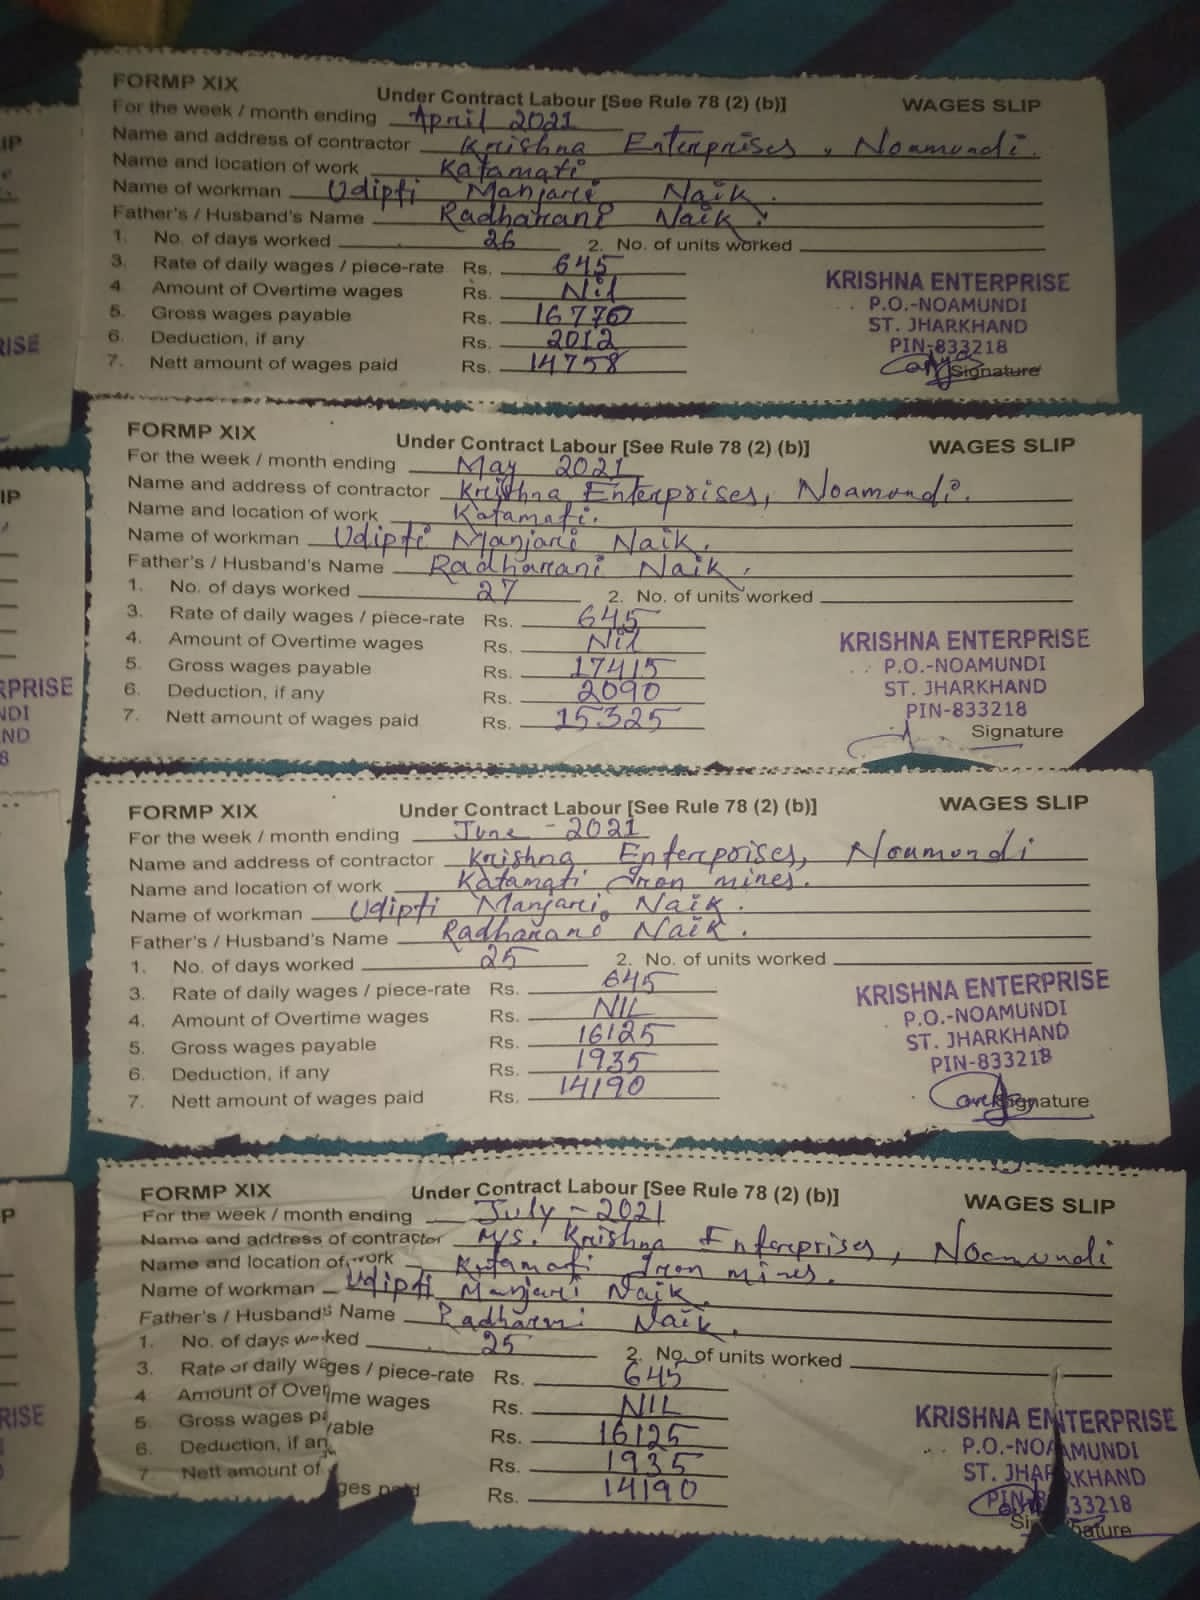 FORMP XIX
Under Contract Labour [See Rule 78 (2) (b)]
WAGES SLIP
For the week / month ending April 2021
Name and address of contractor Krishna Enterprises, Noamundi.
Name and location of work Katamati
Name of workman Udipti Manjari Naik.
Father's / Husband's Name Radharani Naik.
1. No. of days worked 26 2. No. of units worked
3. Rate of daily wages / piece-rate Rs. 645
4. Amount of Overtime wages Rs. Nil
5. Gross wages payable Rs. 16770
6. Deduction, if any Rs. 2012
7. Nett amount of wages paid Rs. 14758
KRISHNA ENTERPRISE
P.O.-NOAMUNDI
ST. JHARKHAND
PIN-833218
Signature
FORMP XIX
Under Contract Labour [See Rule 78 (2) (b)]
WAGES SLIP
For the week / month ending May 2021
Name and address of contractor Krishna Enterprises, Noamundi.
Name and location of work Katamati.
Name of workman Udipti Manjari Naik.
Father's / Husband's Name Radharani Naik.
1. No. of days worked 27 2. No. of units worked
3. Rate of daily wages / piece-rate Rs. 645
4. Amount of Overtime wages Rs. Nil
5. Gross wages payable Rs. 17415
6. Deduction, if any Rs. 2090
7. Nett amount of wages paid Rs. 15325
KRISHNA ENTERPRISE
P.O.-NOAMUNDI
ST. JHARKHAND
PIN-833218
Signature
FORMP XIX
Under Contract Labour [See Rule 78 (2) (b)]
WAGES SLIP
For the week / month ending June - 2021
Name and address of contractor Krishna Enterprises, Noamundi
Name and location of work Katamati Iron mines.
Name of workman Udipti Manjari Naik.
Father's / Husband's Name Radharani Naik.
1. No. of days worked 25 2. No. of units worked
3. Rate of daily wages / piece-rate Rs. 645
4. Amount of Overtime wages Rs. NIL
5. Gross wages payable Rs. 16125
6. Deduction, if any Rs. 1935
7. Nett amount of wages paid Rs. 14190
KRISHNA ENTERPRISE
P.O.-NOAMUNDI
ST. JHARKHAND
PIN-833218
Signature
FORMP XIX
Under Contract Labour [See Rule 78 (2) (b)]
WAGES SLIP
For the week / month ending July - 2021
Name and address of contractor M/s. Krishna Enterprises, Noamundi
Name and location of work Katamati Iron mines.
Name of workman Udipti Manjari Naik.
Father's / Husband's Name Radharani Naik.
1. No. of days worked 25 2. No. of units worked
3. Rate of daily wages / piece-rate Rs. 645
4. Amount of Overtime wages Rs. NIL
5. Gross wages payable Rs. 16125
6. Deduction, if any Rs. 1935
7. Nett amount of wages paid Rs. 14190
KRISHNA ENTERPRISE
P.O.-NOAMUNDI
ST. JHARKHAND
PIN-833218
Signature